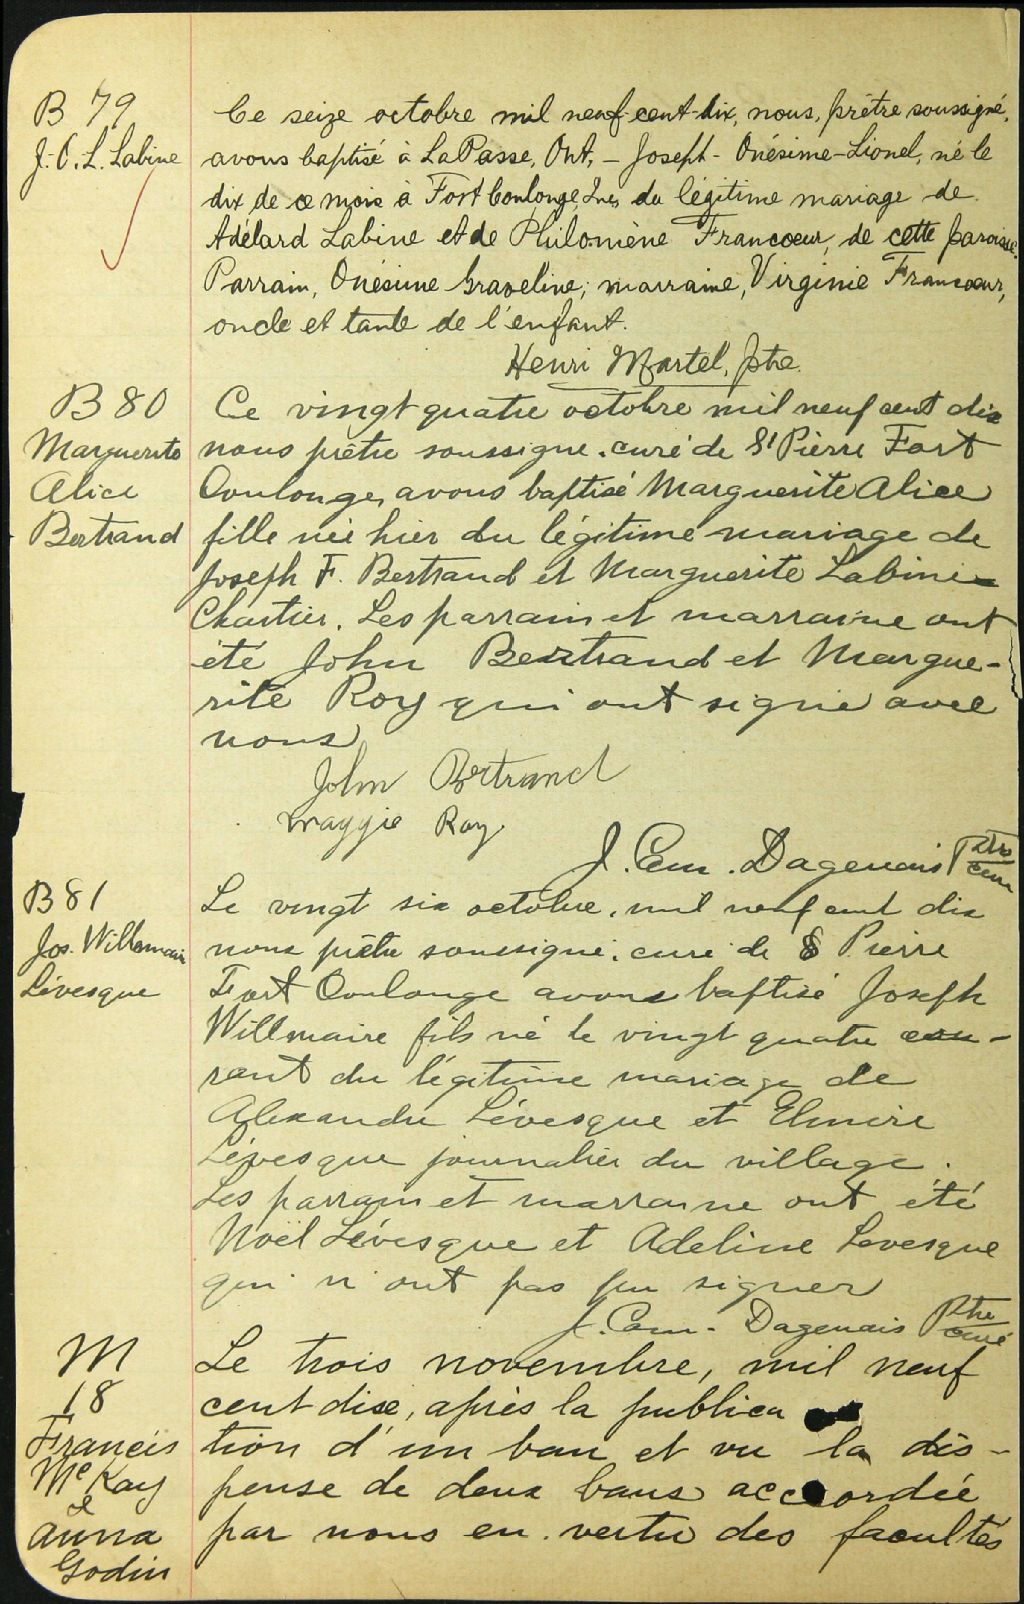 B 79
J. O. L. Labine
Ce seize octobre mil neuf-cent-dix, nous, prêtre soussigné,
avons baptisé à LaPasse, Ont, – Joseph - Onésime-Lionel, né le
dix de ce mois à Fort Coulonge, du légitime mariage de
Adélard Labine et de Philomène Francoeur, de cette paroisse.
Parrain, Onésime Graveline; marraine, Virginie Francoeur,
oncle et tante de l'enfant.
Henri Martel, ptre.
B 80
Marguerite
Alice
Bertrand
Ce vingt quatre octobre mil neuf cent dix
nous prêtre soussigné. curé de St Pierre Fort
Coulonge, avons baptisé Marguerite Alice
fille née hier du légitime mariage de
Joseph F. Bertrand et Marguerite Labine
Chartier. Les parrain et marraine ont
été John Bertrand et Margue-
rite Roy qui ont signé avec
nous
John Bertrand
Maggie Roy
J. Cam. Dagenais Ptre
curé
B 81
Jos. Willmaire
Lévesque
Le vingt six octobre, mil neuf cent dix
nous prêtre soussigné. curé de S Pierre
Fort Coulonge avons baptisé Joseph
Willmaire fils né le vingt quatre cou-
rant du légitime mariage de
Alexandre Lévesque et Elmire
Lévesque journalier du village.
Les parrain et marraine ont été
Noël Lévesque et Adeline Levesque
qui n'ont pas pu signer
J. Cam. Dagenais Ptre
curé
M
18
Francis
McKay
&
Anna
Godin
Le trois novembre, mil neuf
cent dix, après la publica
tion d'un ban et vu la dis-
pense de deux bans accordée
par nous en vertu des facultés